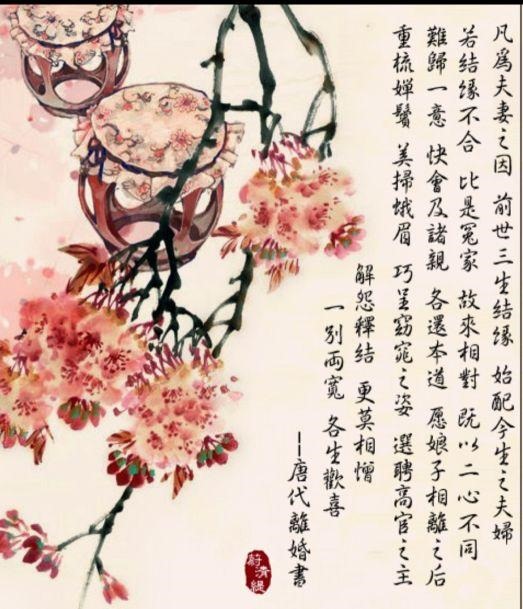 凡爲夫妻之因 前世三生結緣 始配今生之夫婦
若結緣不合 比是冤家 故來相對 既以二心不同
難歸一意 快會及諸親 各還本道 愿娘子相離之后
重梳嬋鬢 美掃蛾眉 巧呈窈窕之姿 選聘高官之主
解怨釋結 更莫相憎
一別兩寬 各生歡喜
——唐代離婚書